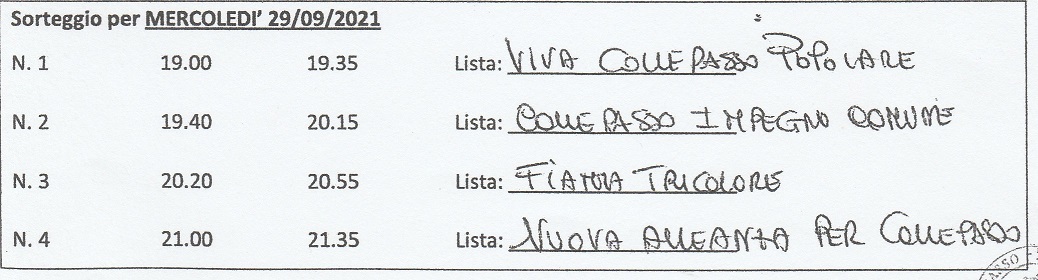 Sorteggio per MERCOLEDI' 29/09/2021
N. 1 19.00 19.35 Lista: VIVA COLLEPASSO POPOLARE
N. 2 19.40 20.15 Lista: COLLEPASSO IMPEGNO COMUNE
N. 3 20.20 20.55 Lista: FIAMMA TRICOLORE
N. 4 21.00 21.35 Lista: NUOVA ALLEANZA PER COLLEPASSO